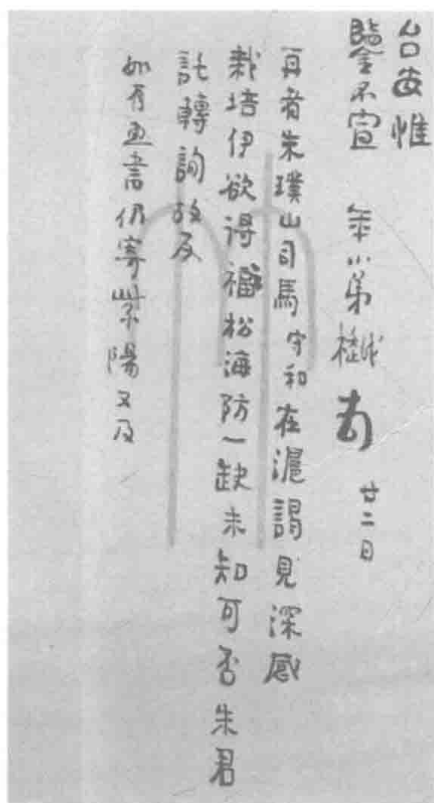 台安惟
鑒不宣 年小弟樾 頓 廿二日
再者朱璞山司馬守和在滬謁見深感
栽培伊欲得福松海防一缺未知可否朱君
託轉詢故及
如有回書仍寄紫陽又及